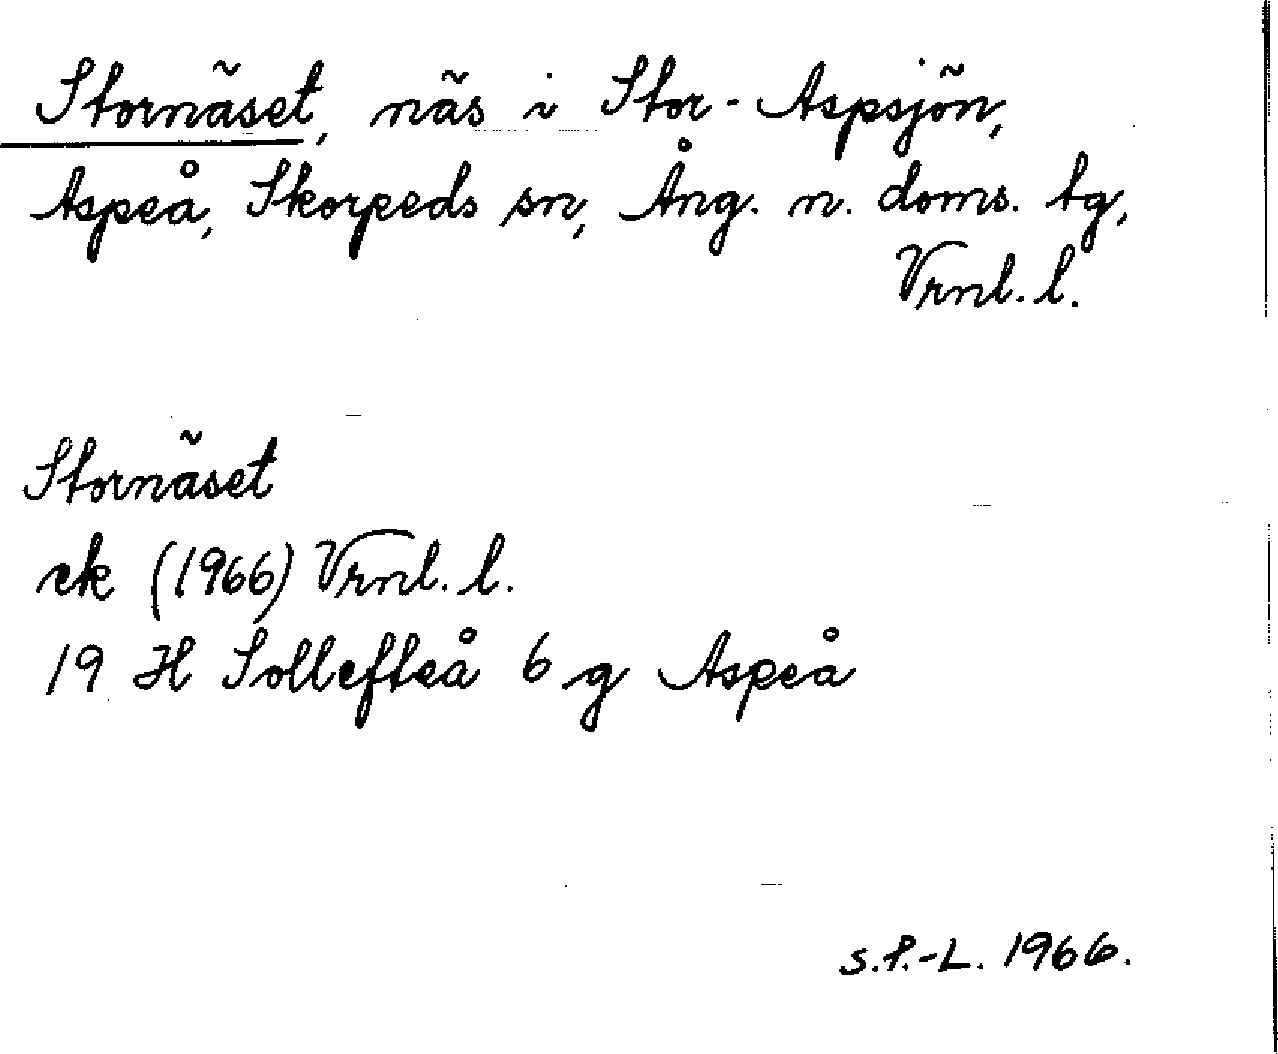 Stornäset, näs i Stor-Aspsjön,
Aspeå, Skorpeds sn, Ång. n. doms. tg,
Vrnl. l.
Stornäset
ek (1966) Vrnl. l.
19 H Sollefteå 6 g Aspeå
S.P.-L. 1966.